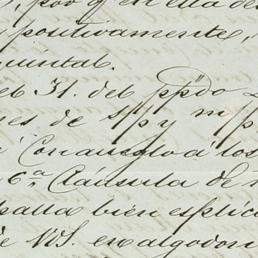 , por q. en ella de
positivamente,
quintal.
el 31. del ppdo
es de s/p y m/p
Con arreglo a los
6ª Cláusula de
palla bien esplic
e VS. en algodon